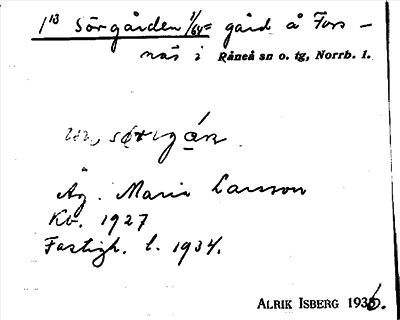 1¹³ Sörgården 1/64 = gård å Fors-
näs i Råneå sn o. tg, Norrb. l.
Äg. Maria Larsson
Kv. 1927
Fastigh. l. 1934.
ALRIK ISBERG 1936.